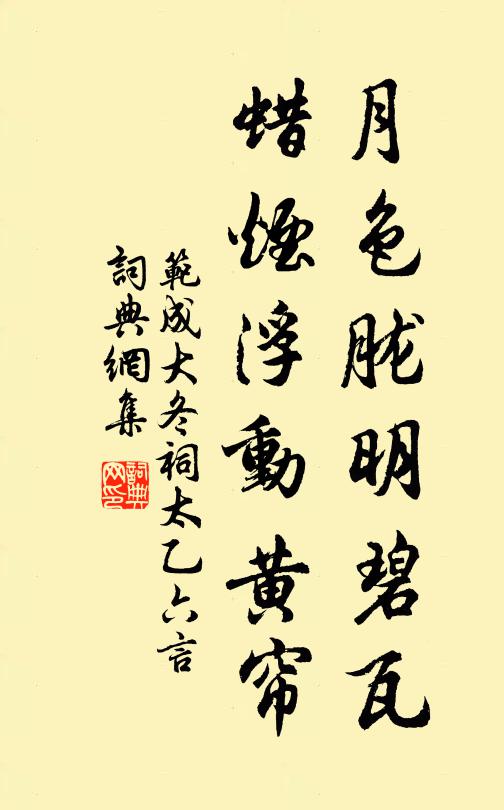 月色胧明碧瓦
蜡煙浮動黄帘
範成大冬祠太乙六言
詞典網集
詞典
网印